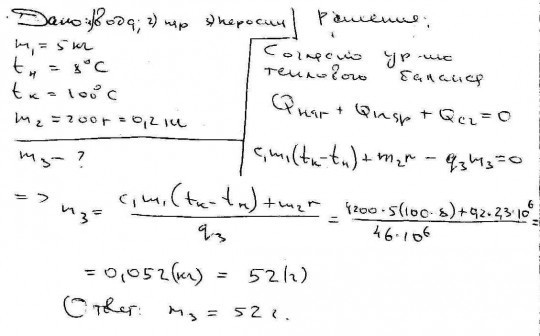 Дано: 1) вода; 2) пар 3) керосин
m₁ = 5 кг
tн = 8°C
tк = 100°C
m₂ = 200 г = 0,2 кг
m₃ - ?
Решение:
Согласно ур-ию
теплового баланса
Qнаг + Qпар + Qсг = 0
c₁m₁(tк - tн) + m₂r - q₃m₃ = 0
=> m₃ = (c₁m₁(tк - tн) + m₂r) / q₃ = (4200·5(100-8) + 92·23·10⁶) / (46·10⁶) =
= 0,052 (кг) = 52 (г)
Ответ: m₃ = 52 г.